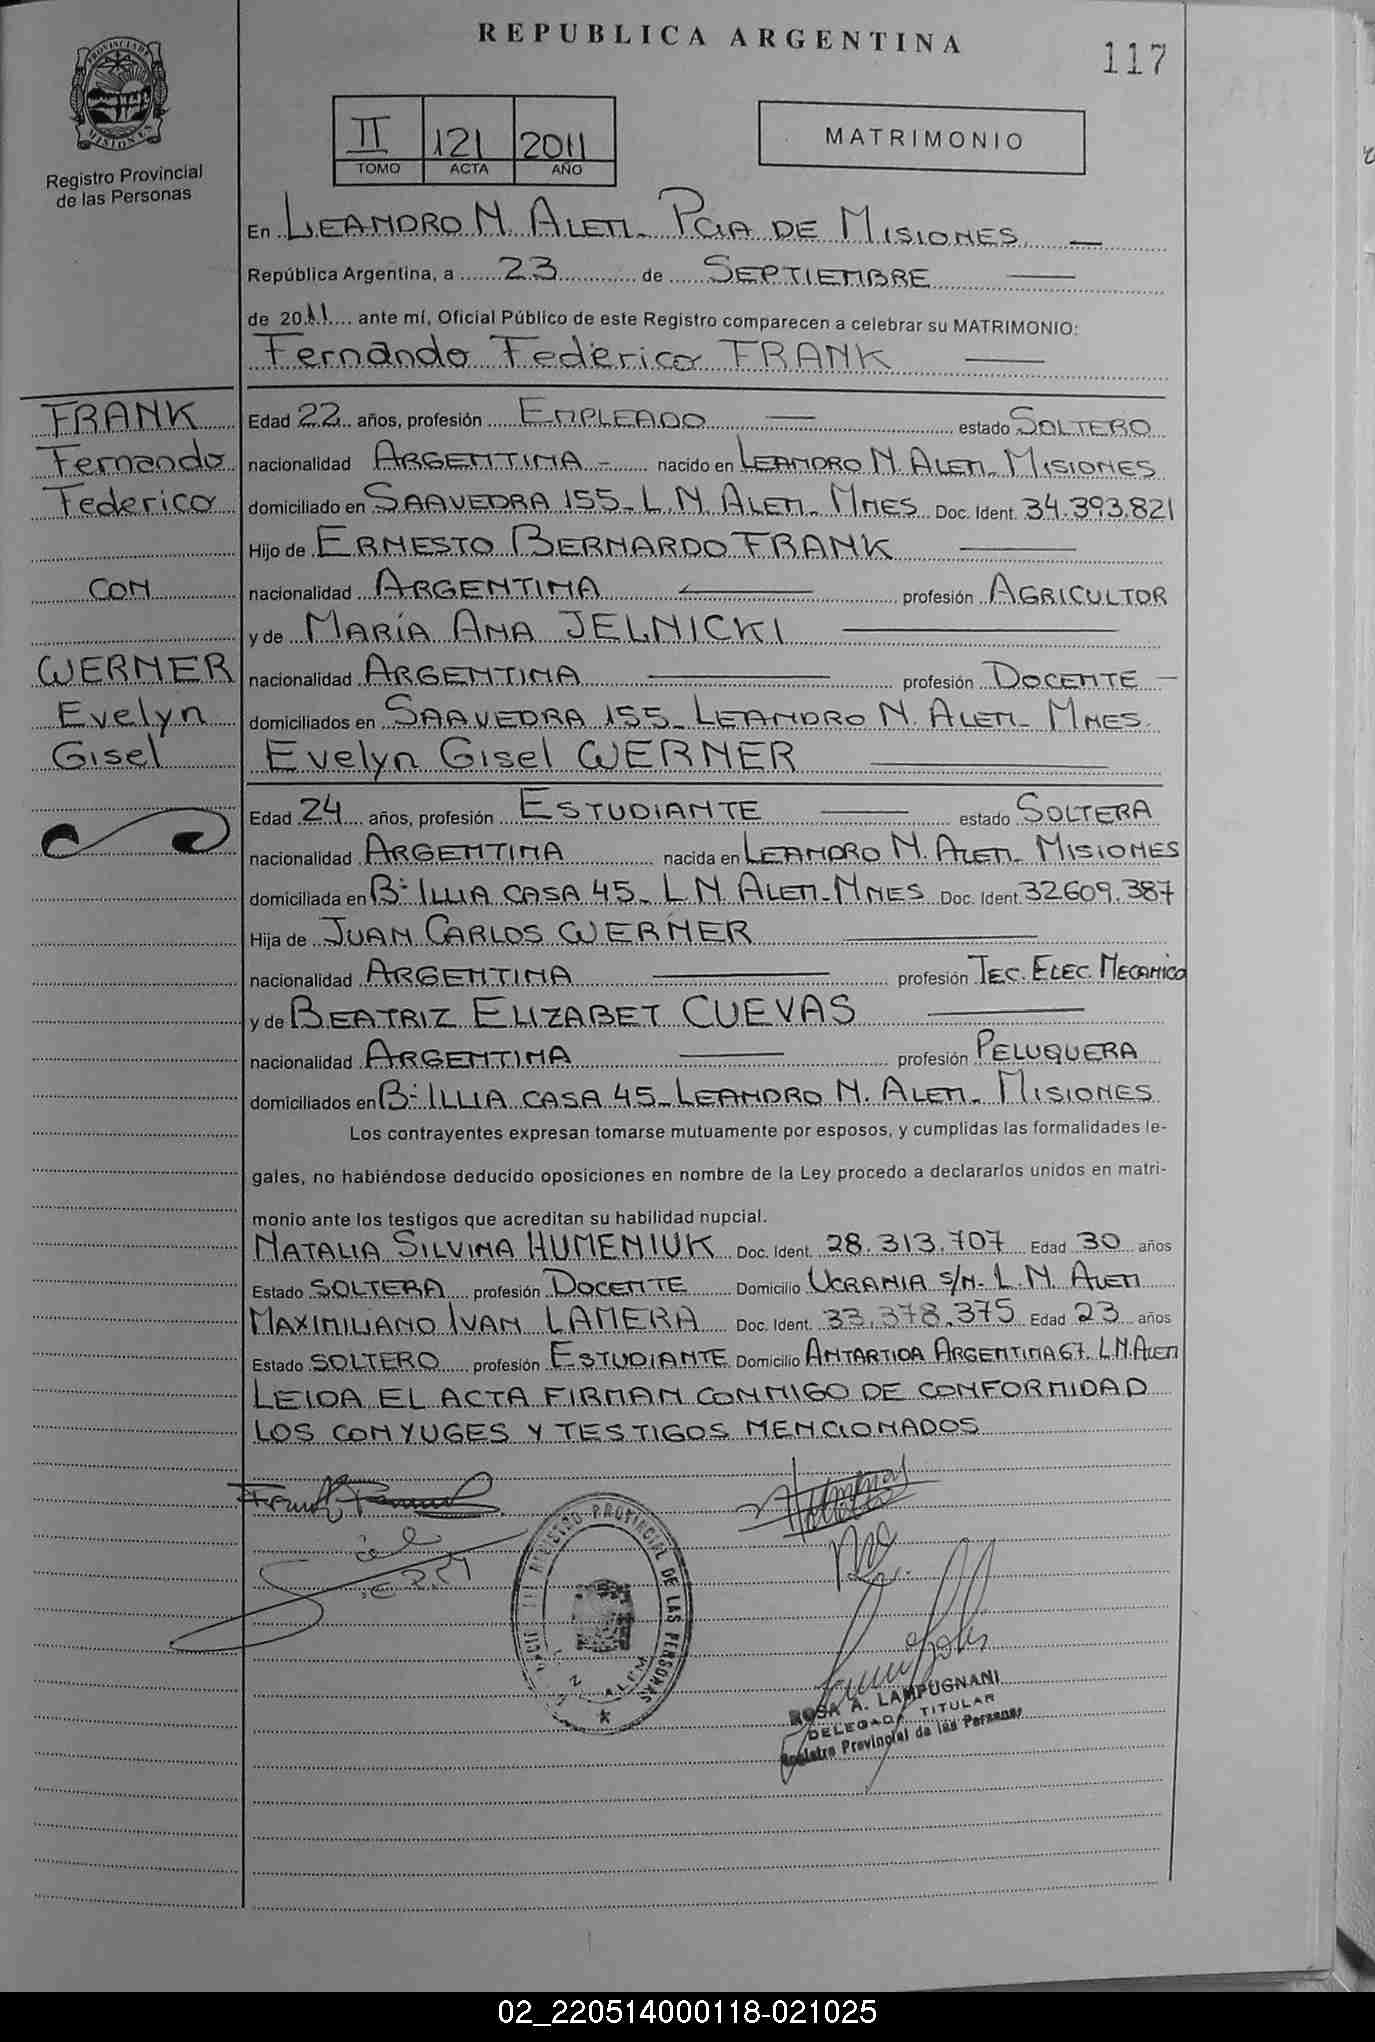 REPUBLICA ARGENTINA
117
PROVINCIA DE MISIONES
Registro Provincial
de las Personas
II 121 2011
TOMO ACTA AÑO
MATRIMONIO
En LEANDRO N. ALEM - PCIA DE MISIONES
República Argentina, a 23 de SEPTIEMBRE
de 2011 ante mí, Oficial Público de este Registro comparecen a celebrar su MATRIMONIO:
Fernando Federico FRANK
FRANK
Fernando
Federico
CON
WERNER
Evelyn
Gisel
Edad 22 años, profesión EMPLEADO estado SOLTERO
nacionalidad ARGENTINA - nacido en LEANDRO N. ALEM - MISIONES
domiciliado en SAAVEDRA 155 - L.N. ALEM - MNES Doc. Ident. 34.393.821
Hijo de ERNESTO BERNARDO FRANK
nacionalidad ARGENTINA profesión AGRICULTOR
y de MARÍA ANA JELNICKI
nacionalidad ARGENTINA profesión DOCENTE
domiciliados en SAAVEDRA 155 - LEANDRO N. ALEM - MNES.
Evelyn Gisel WERNER
Edad 24 años, profesión ESTUDIANTE estado SOLTERA
nacionalidad ARGENTINA nacida en LEANDRO N. ALEM - MISIONES
domiciliada en Bº ILLIA CASA 45 - L.N. ALEM - MNES Doc. Ident. 32.609.387
Hija de JUAN CARLOS WERNER
nacionalidad ARGENTINA profesión TEC. ELEC. MECANICO
y de BEATRIZ ELIZABET CUEVAS
nacionalidad ARGENTINA profesión PELUQUERA
domiciliados en Bº ILLIA CASA 45 - LEANDRO N. ALEM - MISIONES
Los contrayentes expresan tomarse mutuamente por esposos, y cumplidas las formalidades le-
gales, no habiéndose deducido oposiciones en nombre de la Ley procedo a declararlos unidos en matri-
monio ante los testigos que acreditan su habilidad nupcial.
NATALIA SILVINA HUMENIUK Doc. Ident. 28.313.707 Edad 30 años
Estado SOLTERA profesión DOCENTE Domicilio UCRANIA S/N - L.N. ALEM
MAXIMILIANO IVAN LAMERA Doc. Ident. 33.378.375 Edad 23 años
Estado SOLTERO profesión ESTUDIANTE Domicilio ANTARTIDA ARGENTINA 67. L.N. ALEM
LEIDA EL ACTA FIRMAN CONMIGO DE CONFORMIDAD
LOS CONYUGES Y TESTIGOS MENCIONADOS
REGISTRO PROVINCIAL DE LAS PERSONAS
N. ALEM
ROSA A. LAMPUGNANI
DELEGADA TITULAR
Registro Provincial de las Personas
02_220514000118-021025